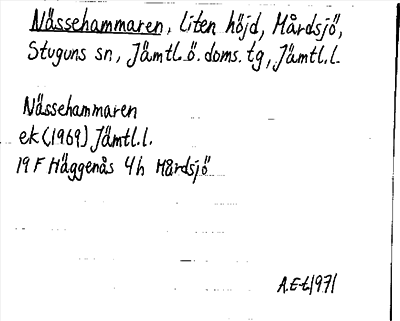 Nässehammaren, liten höjd, Mårdsjö,
Stuguns sn, Jämtl.ö.doms.tg, Jämtl.l.
Nässehammaren
ek(1969) Jämtl.l.
19F Häggenås 4h Mårdsjö
A.E-t 1971